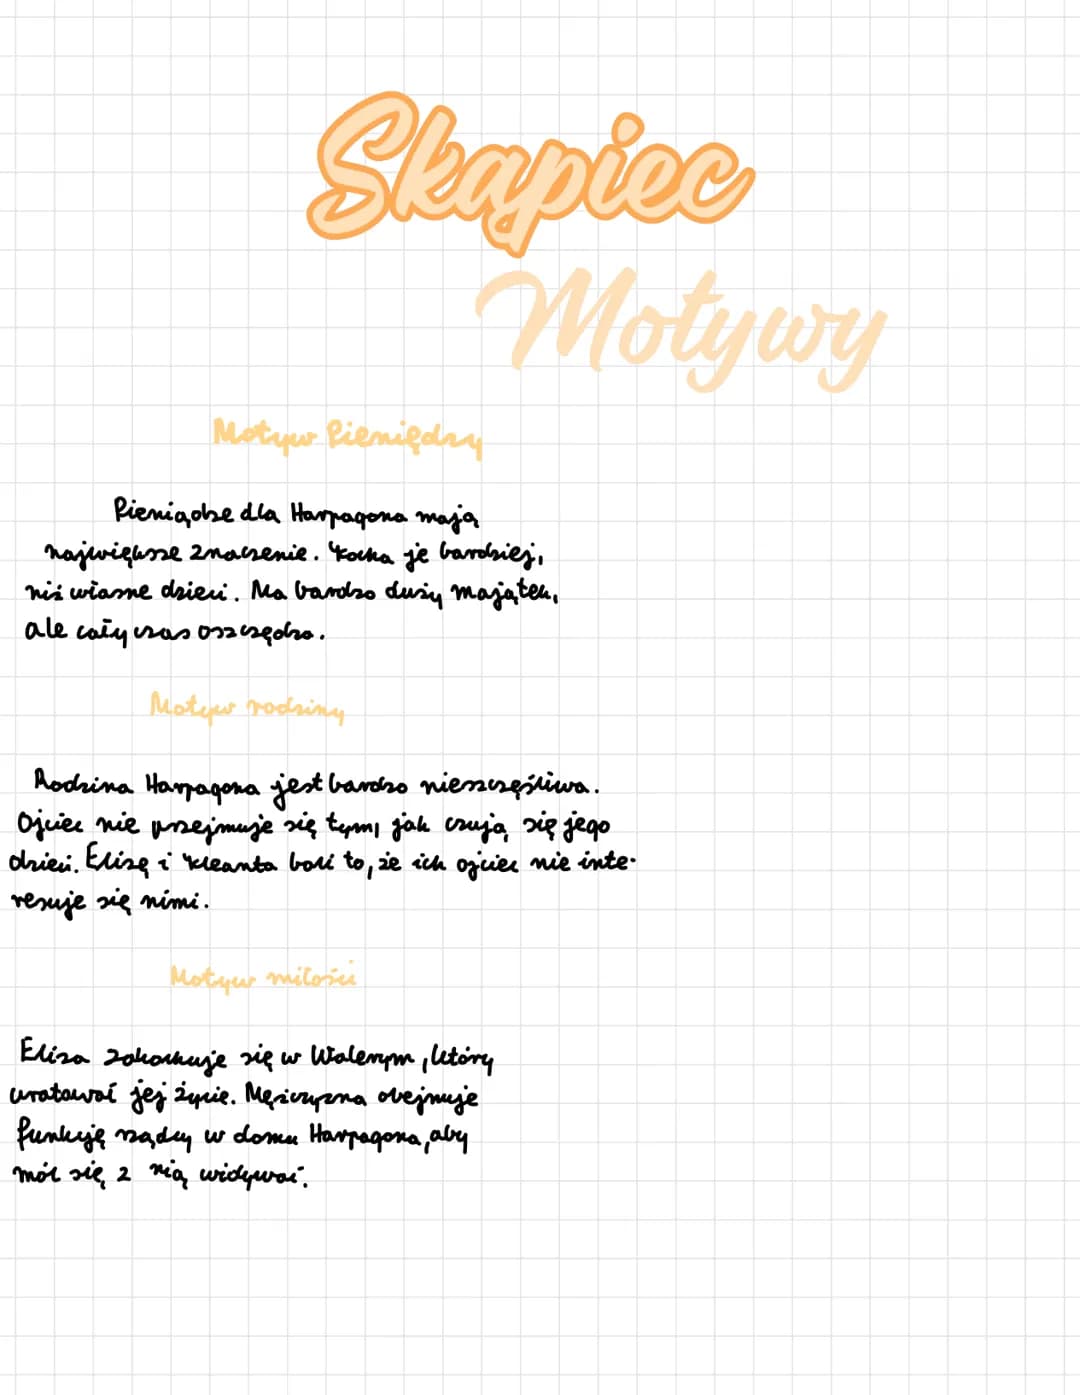 Skąpiec
Motywy
Motyw Pieniędzy
Pieniądze dla Harpagona mają
największe znaczenie. Kocha je bardziej,
niż własne dzieci. Ma bardzo duży majątek,
ale cały czas oszczędza.
Motyw rodziny
Rodzina Harpagona jest bardzo nieszczęśliwa.
Ojciec nie przejmuje się tym, jak czują się jego
dzieci. Elizę i Kleanta boli to, że ich ojciec nie inte-
resuje się nimi.
Motyw miłości
Eliza zakochuje się w Walerym, który
uratował jej życie. Mężczyzna obejmuje
funkcję rządcy w domu Harpagona, aby
móc się z nią widywać.